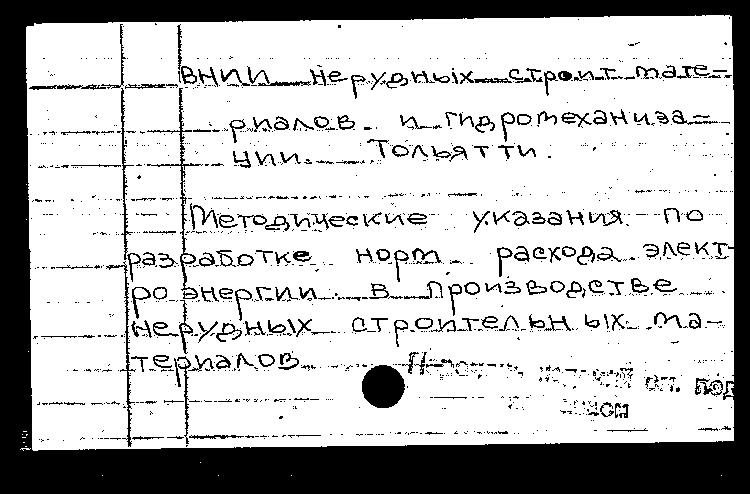 ВНИИ нерудных строит. мате-
риалов и гидромеханиза-
ции. Тольятти.
Методические указания по
разработке норм расхода элект-
роэнергии в производстве
нерудных строительных ма-
териалов
см. под